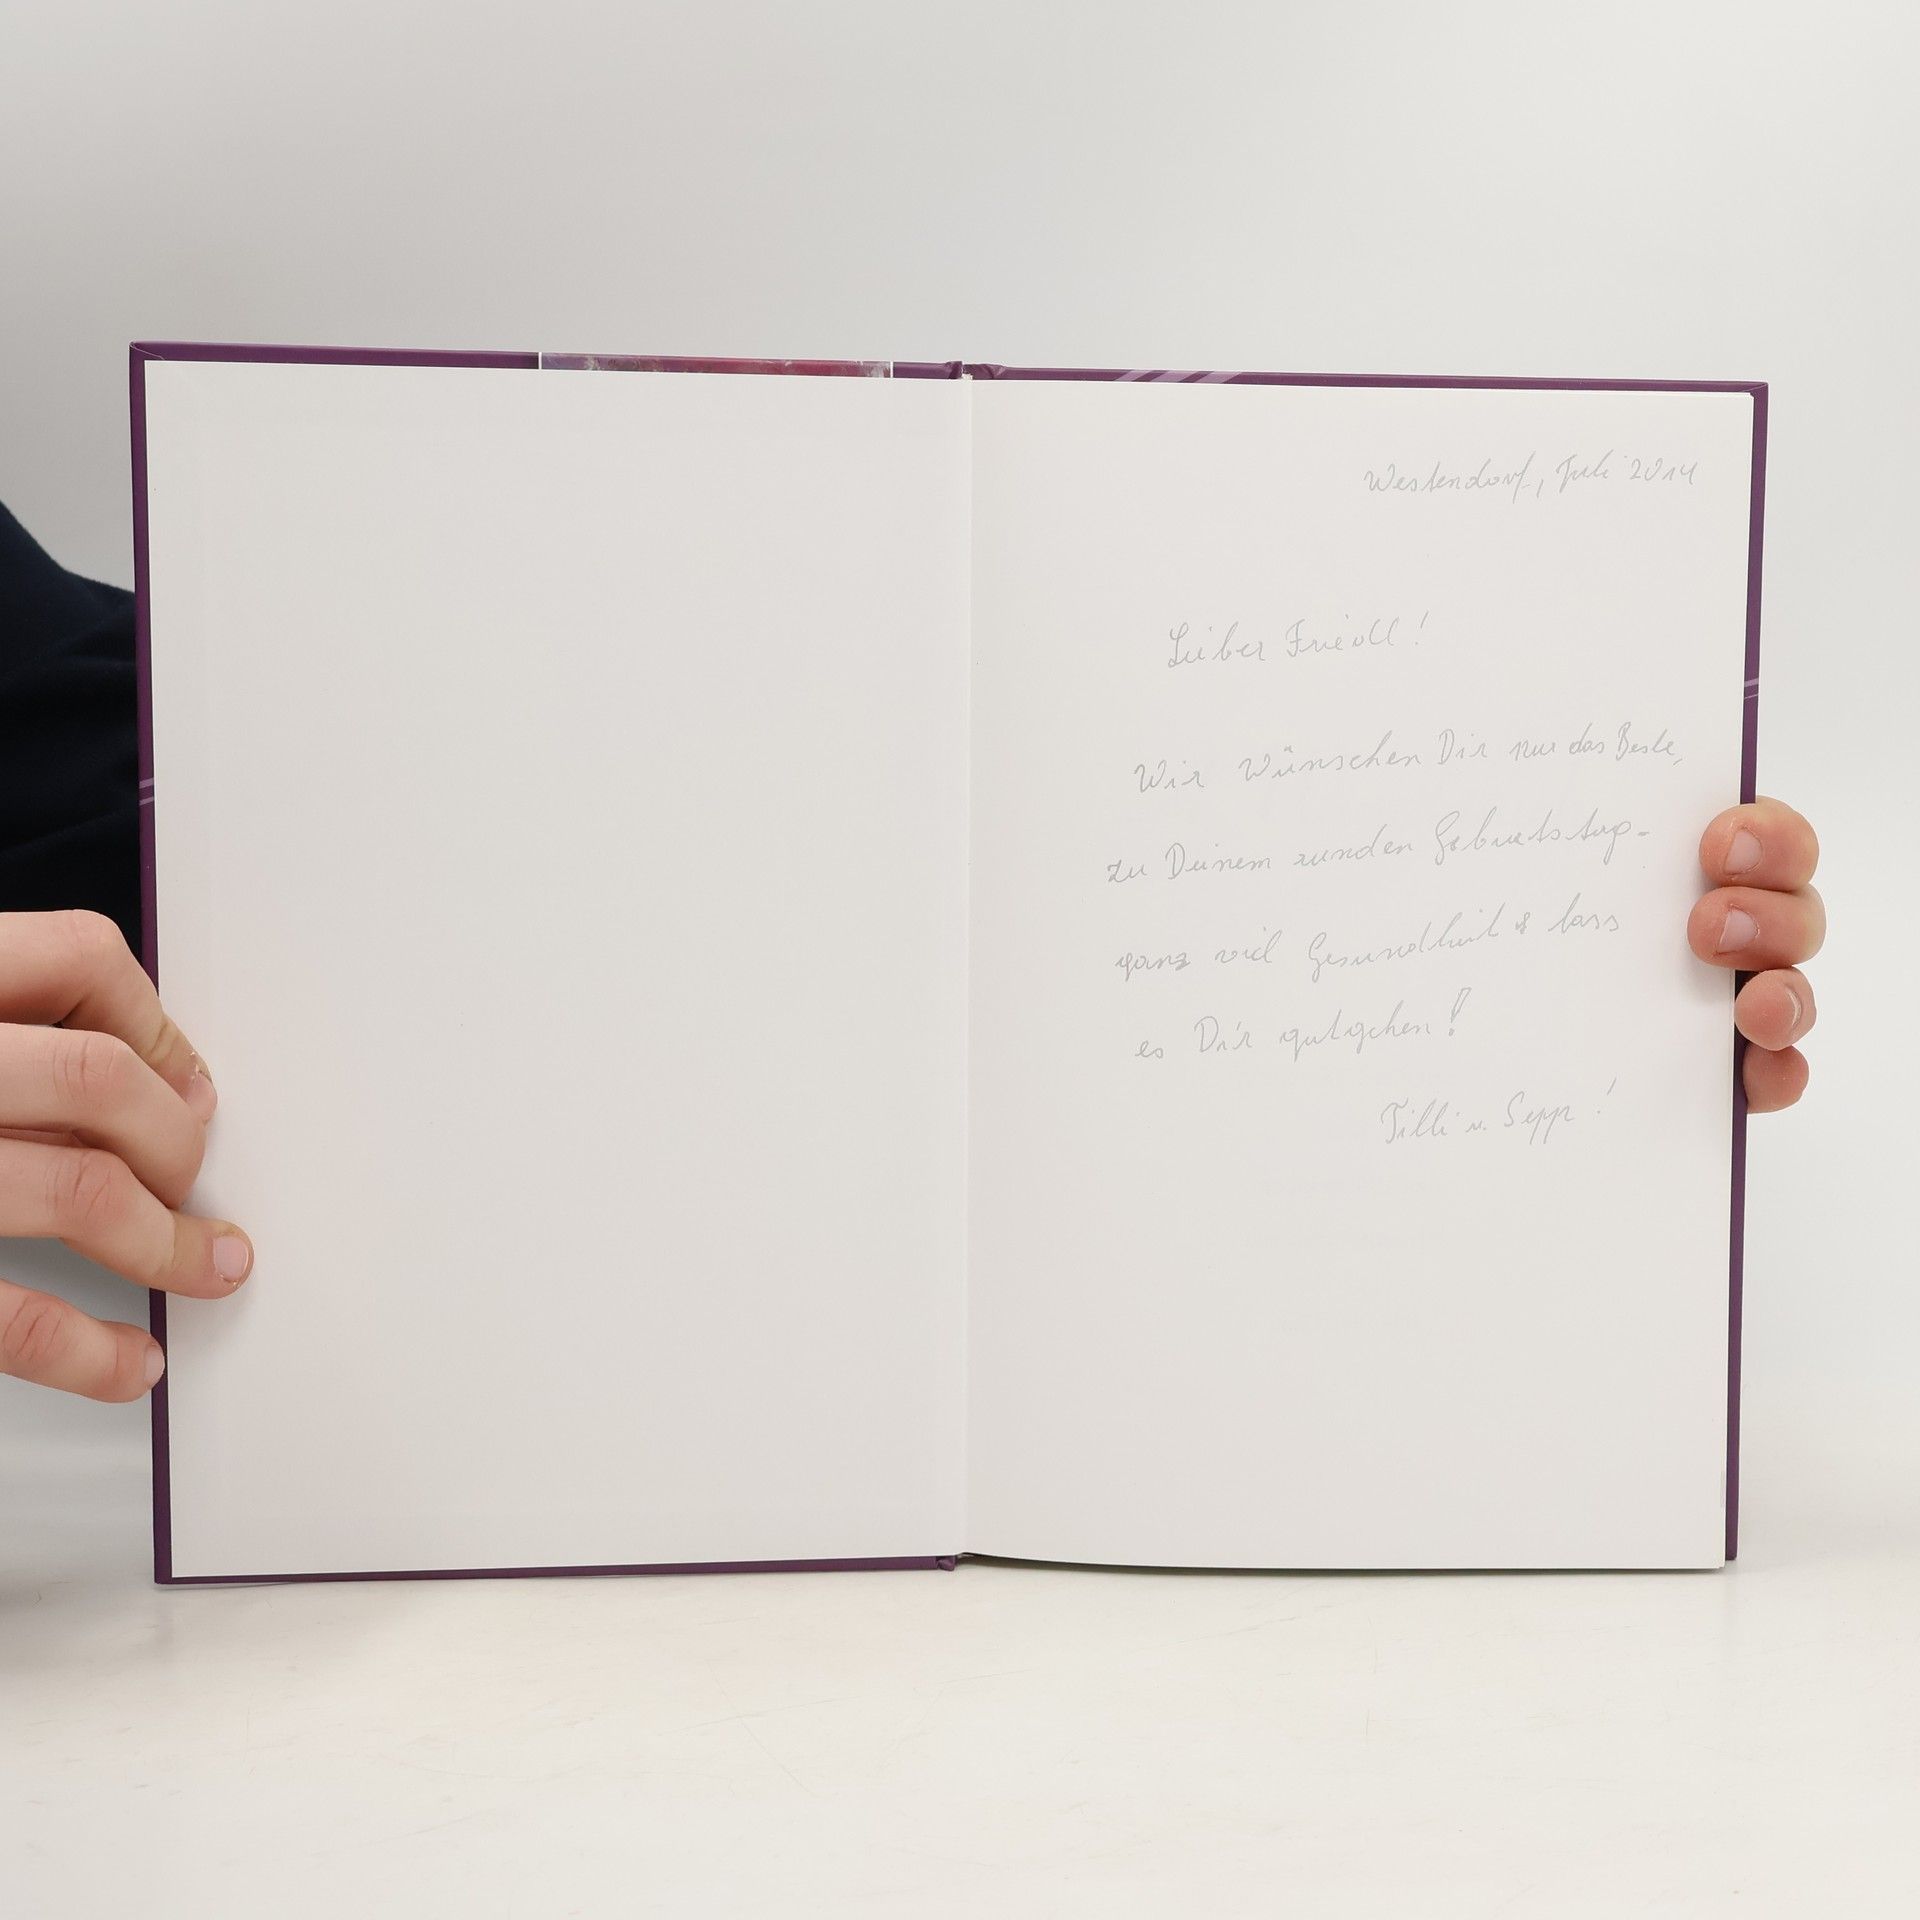 Westendorf, Juli 2014
Lieber Friedl!
Wir Wünschen Dir nur das Beste,
zu Deinem runden Geburtstag-
ganz viel Gesundheit & lass
es Dir gutgehen!
Tilli u. Sepp!